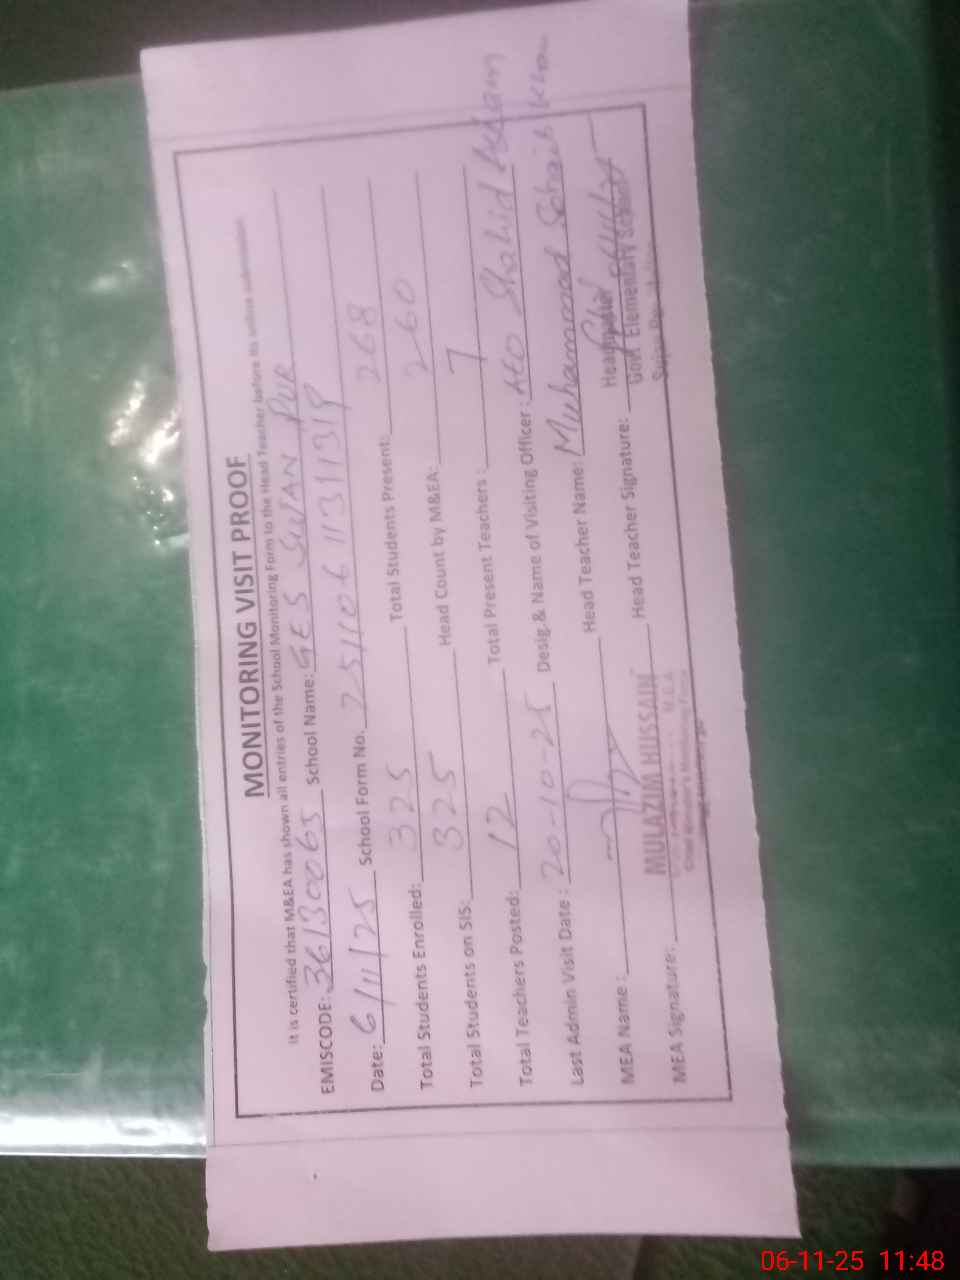 MONITORING VISIT PROOF
It is certified that M&EA has shown all entries of the School Monitoring Form to the Head Teacher before its online submission.
EMISCODE: 36130065 School Name: GES SUJAN PUR
Date: 6/11/25 School Form No.
Total Students Enrolled: 325 Total Students Present: 268
Total Students on SIS: 325 Head Count by M&EA: 260
Total Teachers Posted: 12 Total Present Teachers: 7
Last Admin Visit Date: 20-10-25 Desig & Name of Visiting Officer: AEO Shahid Aslam
MEA Name: Head Teacher Name: Muhammad Sohaib Khan
MEA Signature: Head Teacher Signature:
MULAZIM HUSSAIN
Headmaster
Govt. Elementary School
06-11-25 11:48